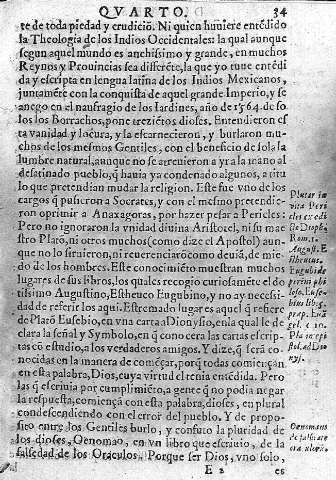 QVARTO. 34
te de toda piedad y erudiciõ. Ni quien huuiere entẽdido
la Theologia de los Indios Occidentales: la qual aunque
segun aquel mundo es anchissimo y grande, en muchos
Reynos y Prouincias sea differẽte, la que yo tuue entẽdi
da y escripta en lengua latina de los Indios Mexicanos,
juntamente con la conquista de aquel grande Imperio, y se
anego en el naufragio de los Iardines, año de 1564. de so
los los Borrachos, pone treziẽtos dioses. Entendieron es
ta vanidad y locura, y la escarnecieron, y burlaron mu-
chos de los mesmos Gentiles, con el beneficio de sola la
lumbre natural, aunque no se atreuieron a yr a la mano al
desatinado pueblo, q̃ hauia ya condenado algunos, a titu
lo que pretendian mudar la religion. Este fue vno de los
cargos q̃ pusieron a Socrates, y con el mesmo pretendie-
ron oprimir a Anaxagoras, por hazer pesar a Pericles:
Pero no ignoraron la vnidad diuina Aristotel, ni su mae
stro Platõ, ni otros muchos (como dize el Apostol) aun-
que no lo siruieron, ni reuerenciarõ como deuiã, de mie
do de los hombres. Este conocimiẽto muestran muchos
lugares de sus libros, los quales recogio curiosamẽte el do
tissimo Augustino, Estheuco Eugubino, y no ay necessi-
dad de referir los aqui. Estremado lugar es aquel q̃ refiere
de Platõ Eusebio, en vna carta a Dionysio, en la qual le de
clara la señal y Symbolo, en q̃ conocera las cartas escrip-
tas cõ estudio, a los verdaderos amigos. Y dize, q̃ serã co-
nocidas en la manera de comẽçar, porq̃ todas comiençan
en esta palabra, Dios, cuya virtud el tenia entẽdida. Pero
las q̃ escriuia por cumplimiẽto, a gẽte q̃ no podia negar
la respuesta, comiença con esta palabra, dioses, en plural
condescendiendo con el error del pueblo. Y de proposi-
to entre los Gentiles burlo, y confuto la pluralidad de
los dioses, Oenomao, en vn libro que escriuio, de la
falsedad de los Oraculos. Porque ser Dios, vno solo,
E 2 es
Plutar. in
vita Peri
Rom. 1.
August. E
Eugubi. de
Oenomaus
de falsitate